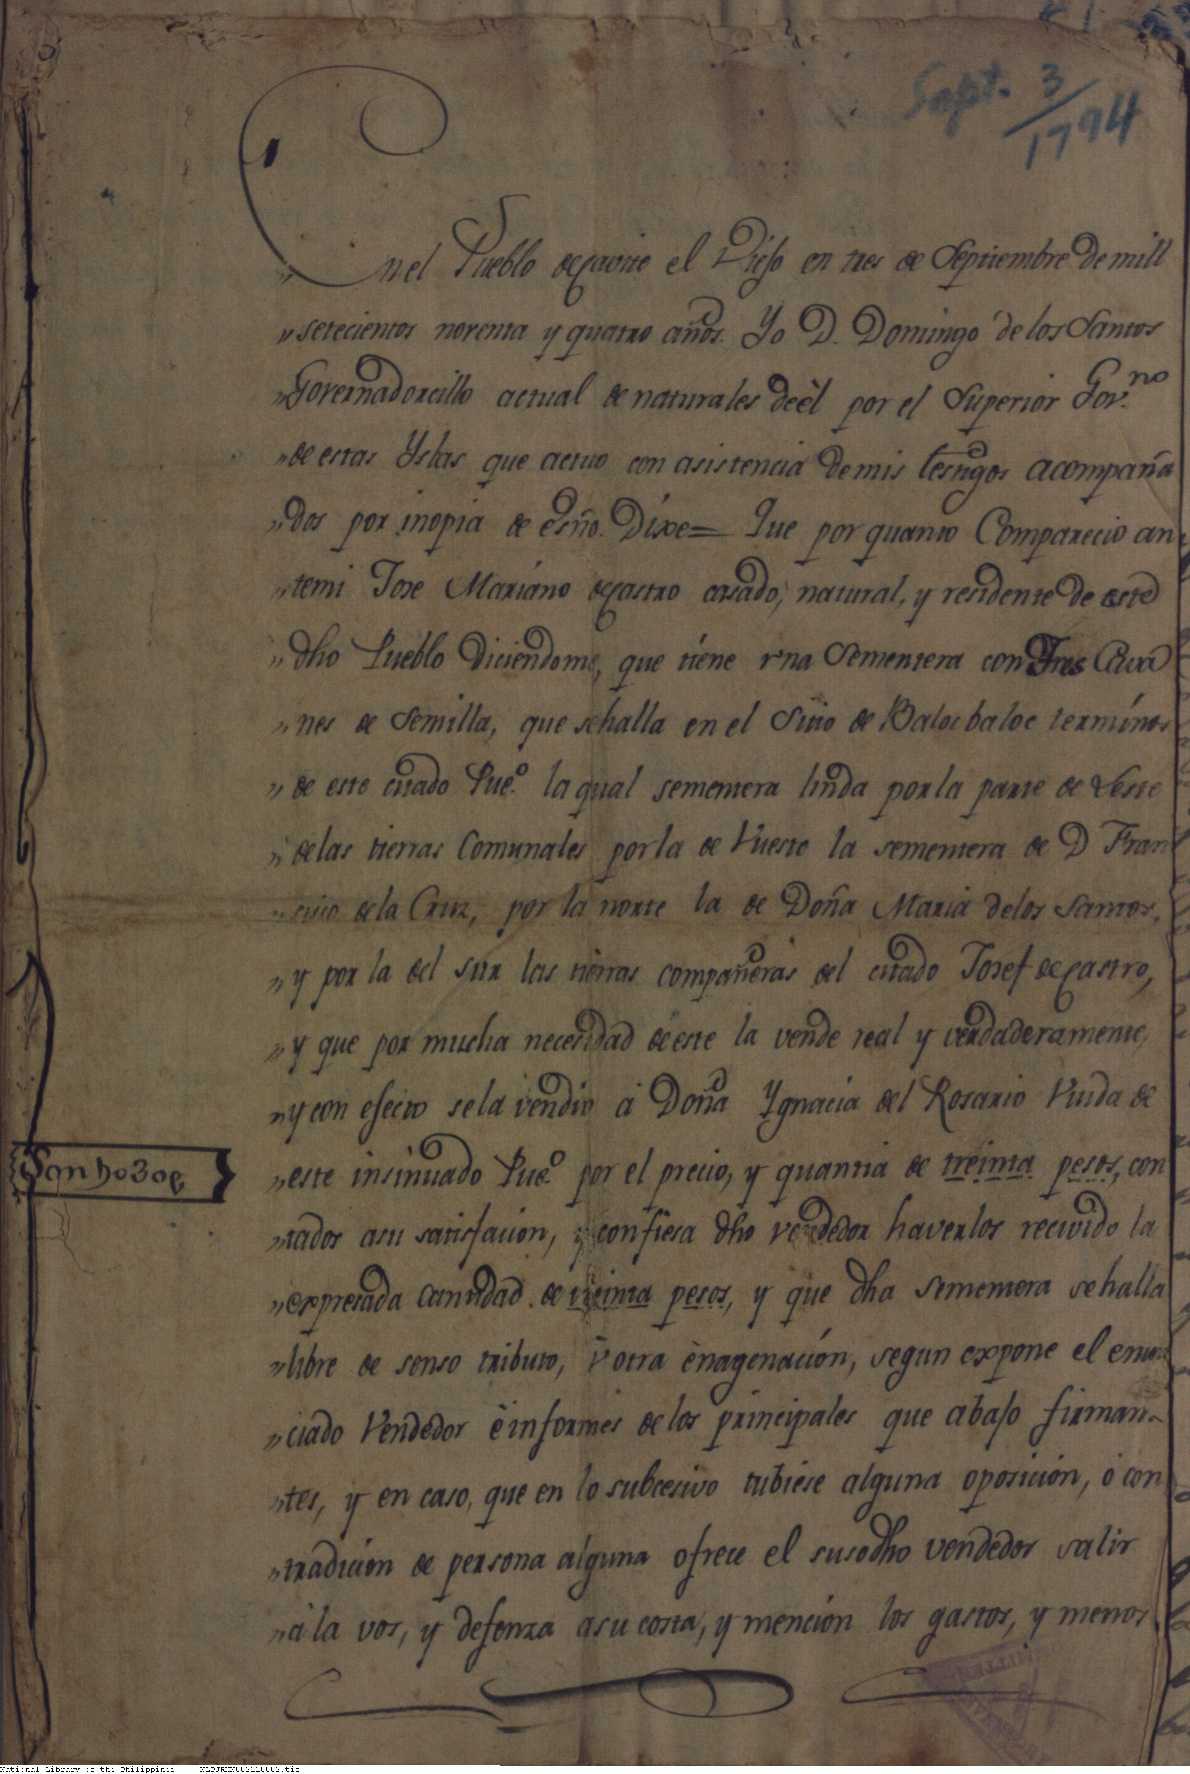 Sept. 3/1794
En el Pueblo de Cavite el Viejo en tres de Septiembre de mill
setecientos noventa y quatro años. Yo D. Domingo de los Santos
Governadorcillo actual de naturales de èl por el Superior Gov.no
de estas Yslas que actuo con asistencia de mis testigos acompaña
dos por inopia de esño. Dixe= Que por quanto Comparecio an
temi Jose Mariano de Castro casado, natural, y residente de este
dho Pueblo Diciendome, que tiene vna Sementera con Tres Cava
nes de Semilla, que se halla en el Sitio de Baloc baloc terminos
de este citado Pue.o la qual sementera linda por la parte de Leste
de las tierras Comunales por la de Vueste la sementera de D Fran
cisco de la Cruz, por la norte la de Doña Maria de los Santos,
y por la del sur las tierras compañeras del citado Josef de Castro,
y que por mucha necesidad de este la vende real y verdaderamente,
y con efecto se la vendio á Doña Ygnacia del Rosario Viuda de
este insinuado Pue.o por el precio, y quantia de treinta pesos, con
tados asu satisfacion, y confiesa dho vendedor haverlos recivido la
expresada cantidad de treinta pesos, y que dha sementera se halla
libre de senso tributo, ù otra ènagenación, segun expone el enun
ciado Vendedor è informes de los principales que abajo firman
tes, y en caso, que en lo subcesivo tubiese alguna oposición, ó con
tradición de persona alguna ofrece el susodho vendedor salir
á la vos, y defenza asu costa, y mención los gastos, y menos
National Library of the Philippines